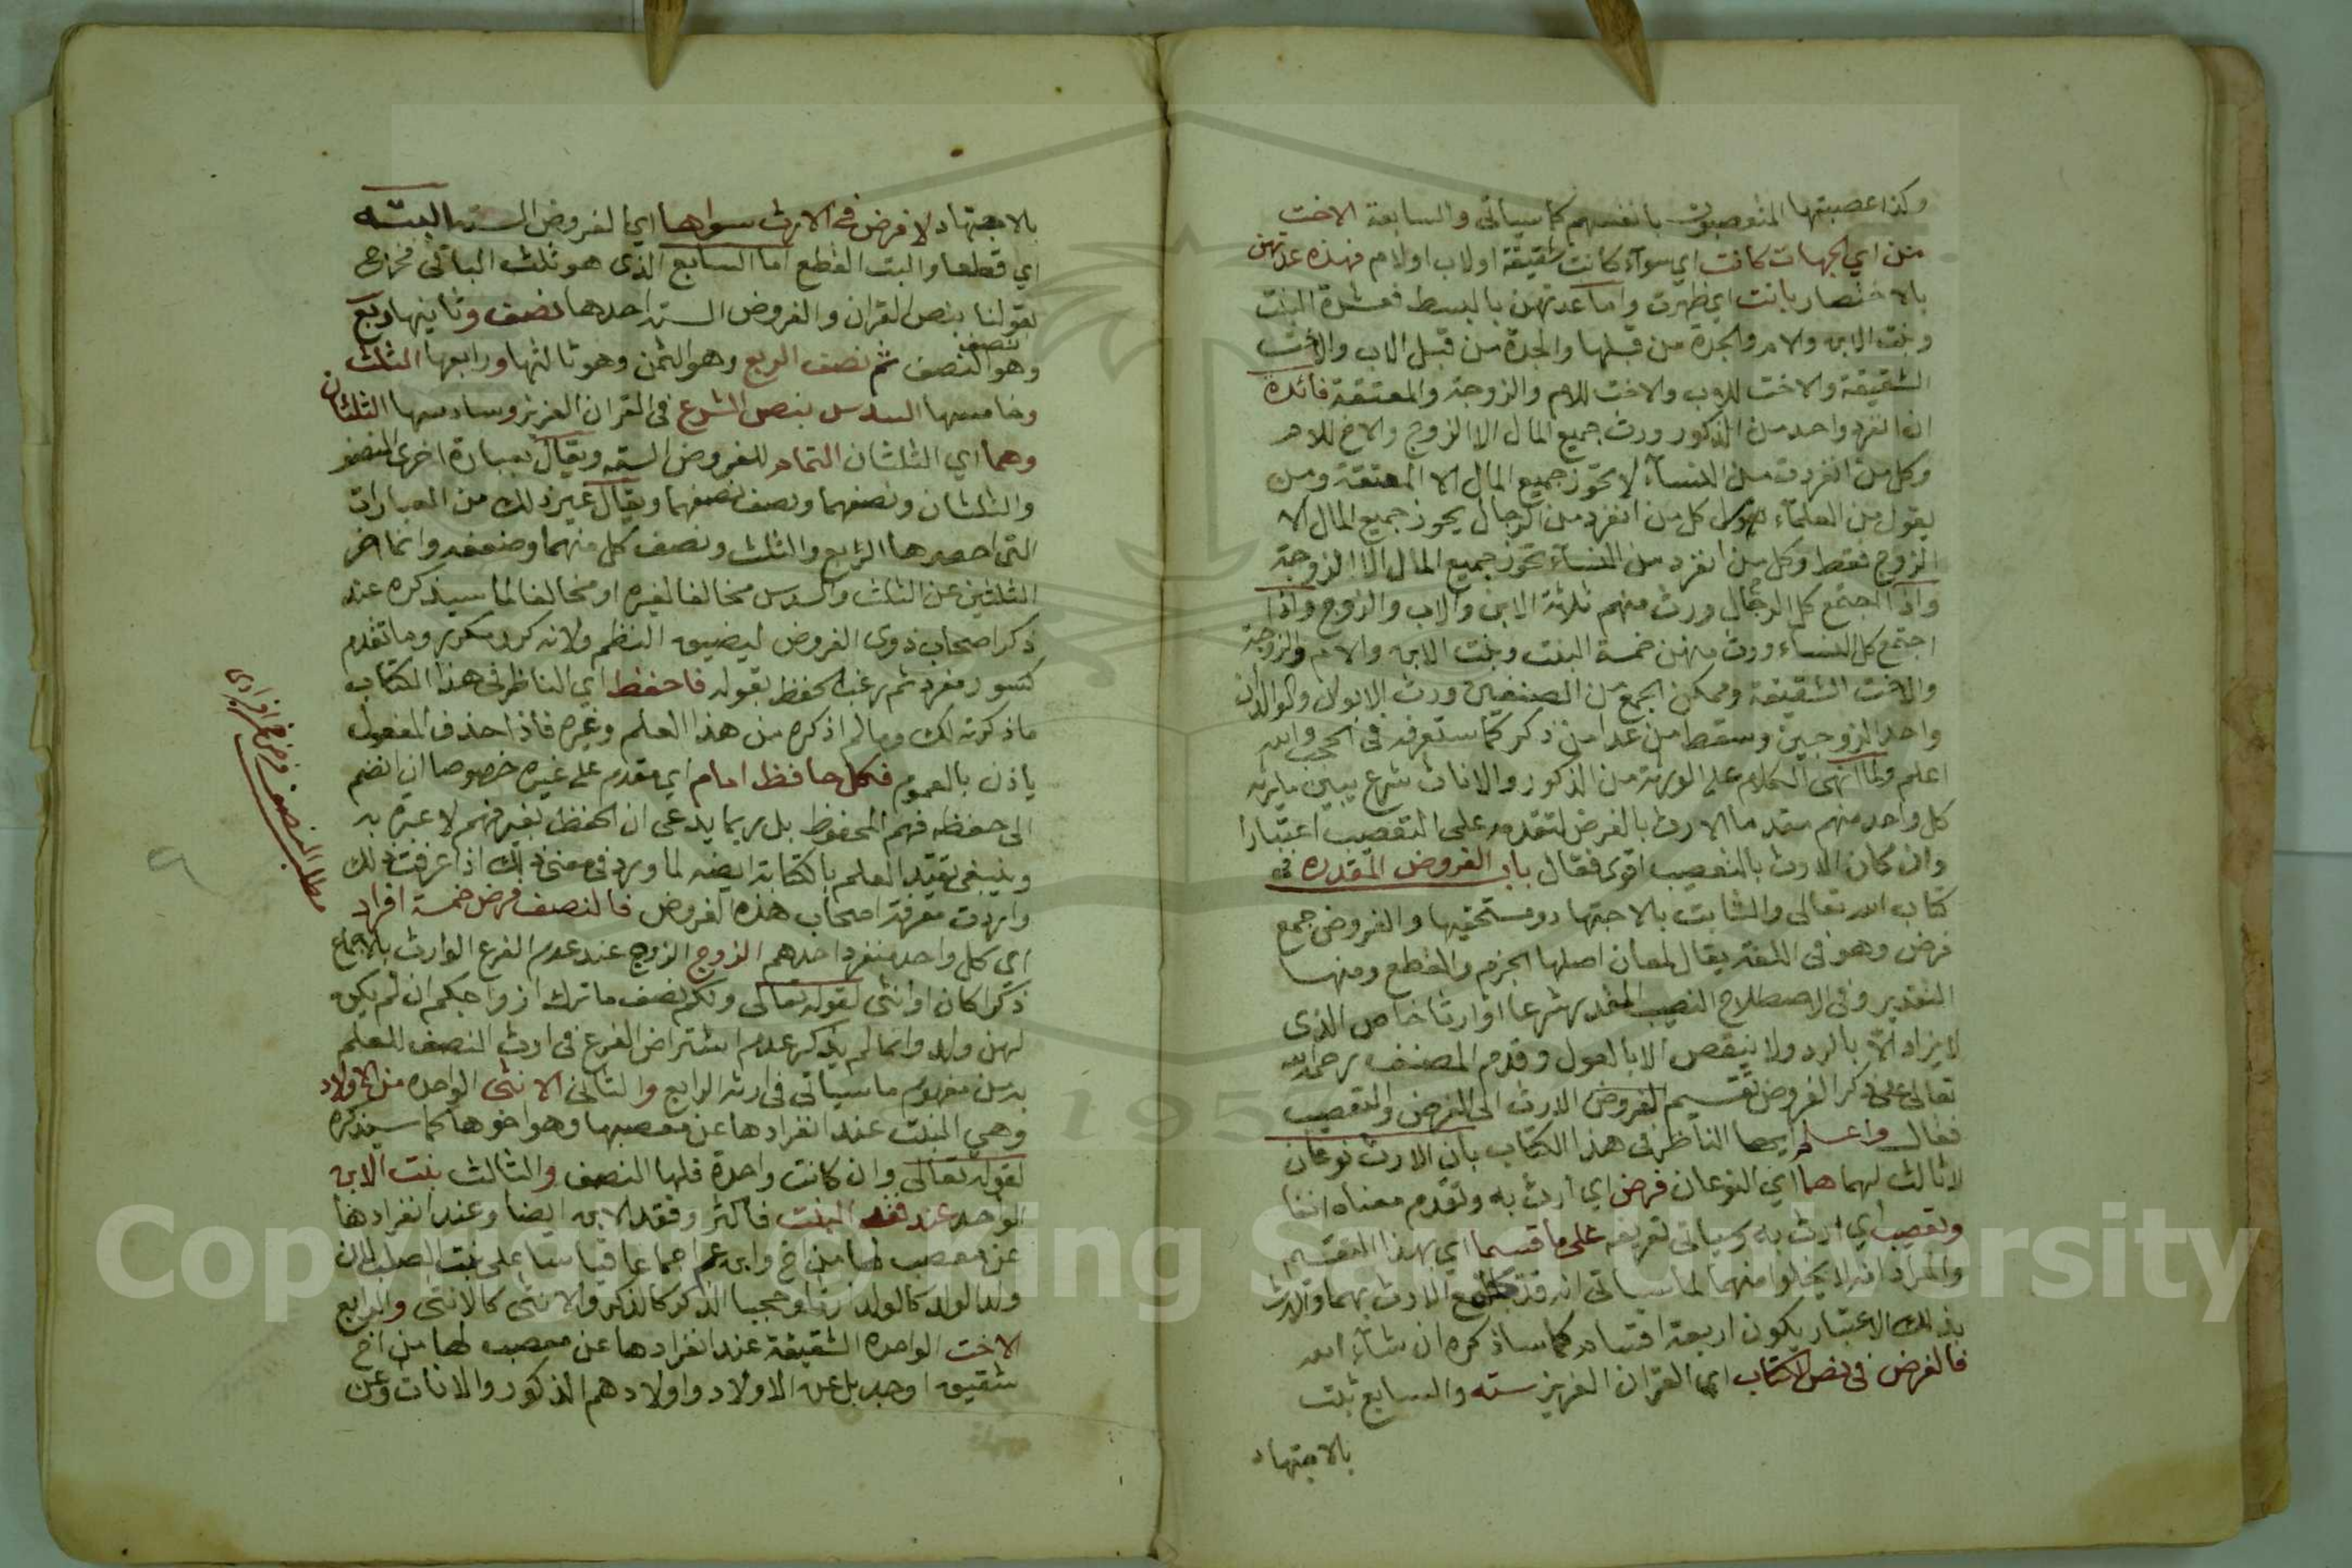 وكذا عصبتها المتعصبون بانفسهم كما سياتى والسابعة الاخت
من اي الجهات كانت اي سوآء كانت شقيقة او لاب او لام فهذه عدتهن
بالاختصار بانت اي ظهرت واما عدتهن بالبسط فعشرة البنت
وبنت الابن والام والجدة من قبلها والجدة من قبل الاب والاخت
الشقيقة والاخت للاب والاخت للام والزوجة والمعتقة فائدة
ان انفرد واحد من الذكور ورث جميع المال الا الزوج والاخ للام
وكل من انفردت من النسآء لا تحوز جميع المال الا المعتقة ومن
يقول من العلمآء كل من انفرد من الرجال يحوز جميع المال الا
الزوج فقط وكل من انفرد من النسآء تحوز جميع المال الا الزوجة
واذا اجتمع كل الرجال ورث منهم ثلاثة الابن والاب والزوج واذا
اجتمع كل النساء ورث منهن خمسة البنت وبنت الابن والام والزوجة
والاخت الشقيقة وممكن الجمع من الصنفين ورث الابوان والولدان
واحد الزوجين وسقط من عدا من ذكر كما ستعرفه فى الحجب والله
اعلم ولما انهى الكلام على الورثة من الذكور والاناث شرع يبين ما يرثه
كل واحد منهم مقدما الارث بالفرض لتقدمه على التعصيب اعتبارا
وان كان الارث بالتعصيب اقوى فقال باب الفروض المقدره فى
كتاب الله تعالى والثابت بالاجتهاد ومستحقيها والفروض جمع
فرض وهو فى اللغة يقال لمعان اصلها الحزم والقطع ومنها
التقدير وفى الاصطلاح النصيب المقدر شرعا لوارث خاص الذى
لا يزاد الا بالرد ولا ينقص الا بالعول وقدم المصنف رحمه الله
تعالى على ذكر الفروض تقسيم الفروض الارث الى الفرض والتعصيب
فقال واعلم ايها الناظر فى هذا الكتاب بان الارث نوعان
لا ثالث لهما هما اي النوعان فرض اي ارث به وتقدم معناه انفا
وتعصيب اي ارث به وسياتى تعريفه على ما قسما اي بهذا التقسيم
والمراد انه لا يخلوا منهما لما سياتى انه قد يجتمع الارث بهما والارث
بذلك الاعتبار يكون اربعة اقسام كما ساذكره ان شآء الله
فالفرض فى نص الكتاب اي القران العزيز سته والسابع ثبت
بالاجتهاد
بالاجتهاد لا فرض فى الارث سواها اي الفروض الستة البته
اي قطعا والبت القطع اما السابع الذى هو ثلث الباقى فخرج
بقولنا بنص القران والفروض الستة احدها نصف وثانيها ربع
وهو نصف النصف ثم نصف الربع وهو الثمن وهو ثالثها ورابعها الثلث
وخامسها السدس بنص الشرع فى القران العزيز وسادسها الثلثان
وهما اي الثلثان التمام للفروض الستة ويقال بعبارة اخرى النصف
والثلثان ونصفهما ونصف نصفهما ويقال غير ذلك من العبارات
التى اخصرها الربع والثلث ونصف كل منهما وضعفه وانما اخر
الثلثين عن الثلث والسدس مخالفا لغيره او مخالفا لما سيذكره عند
ذكر اصحاب ذوى الفروض ليضيق النظم ولانه كرر مكرر وما تقدم
كسور مفرد ثم رغب الحفظ بقوله فاحفظ اي الناظر فى هذا الكتاب
ما ذكرته لك وما لم اذكره من هذا العلم وغيره فاذا حذف المفعول
ياذن بالعموم فكل حافظ امام اي مقدم على غيره خصوصا ان انضم
الى حفظه فهم المحفوظ بل ربما يدعى ان الحفظ بغير فهم لا عبرة به
وينبغى تقيد العلم بالكتابة ايضه لما ورد فى معنى ذلك اذا عرفت ذلك
واردت معرفة اصحاب هذه الفروض فالنصف فرض خمسة افراد
اي كل واحد منفرد احدهم الزوج الزوج عند عدم الفرع الوارث بالاجماع
ذكرا كان او انثى لقوله تعالى ولكم نصف ما ترك ازواجكم ان لم يكن
لهن ولد وانما لم يذكر عدم اشتراض الفرع فى ارث النصف للعلم
به من مفهوم ما سياتى فى ارثه الرابع والثانى الانثى الواحده من الاولاد
وهي البنت عند انفرادها عن معصبها وهو اخوها كما سيذكره
لقوله تعالى وان كانت واحدة فلها النصف والثالث بنت الابن
الواحد عند فقد البنت فاكثر وفقد الابن ايضا وعند انفرادها
عن معصب لها من اخ وابن عم اجماعا قياسا على بنت الصلب لان
ولد الولد كالولد ارثا وحجبا الذكر كالذكر والانثى كالانثى والرابع
الاخت الواحدة الشقيقة عند انفرادها عن معصب لها من اخ
شقيق او جد بل عن الاولاد واولادهم الذكور والاناث وعن
مطلب النصف فرض خمسة افراد
Copyright © King Saud University
1957